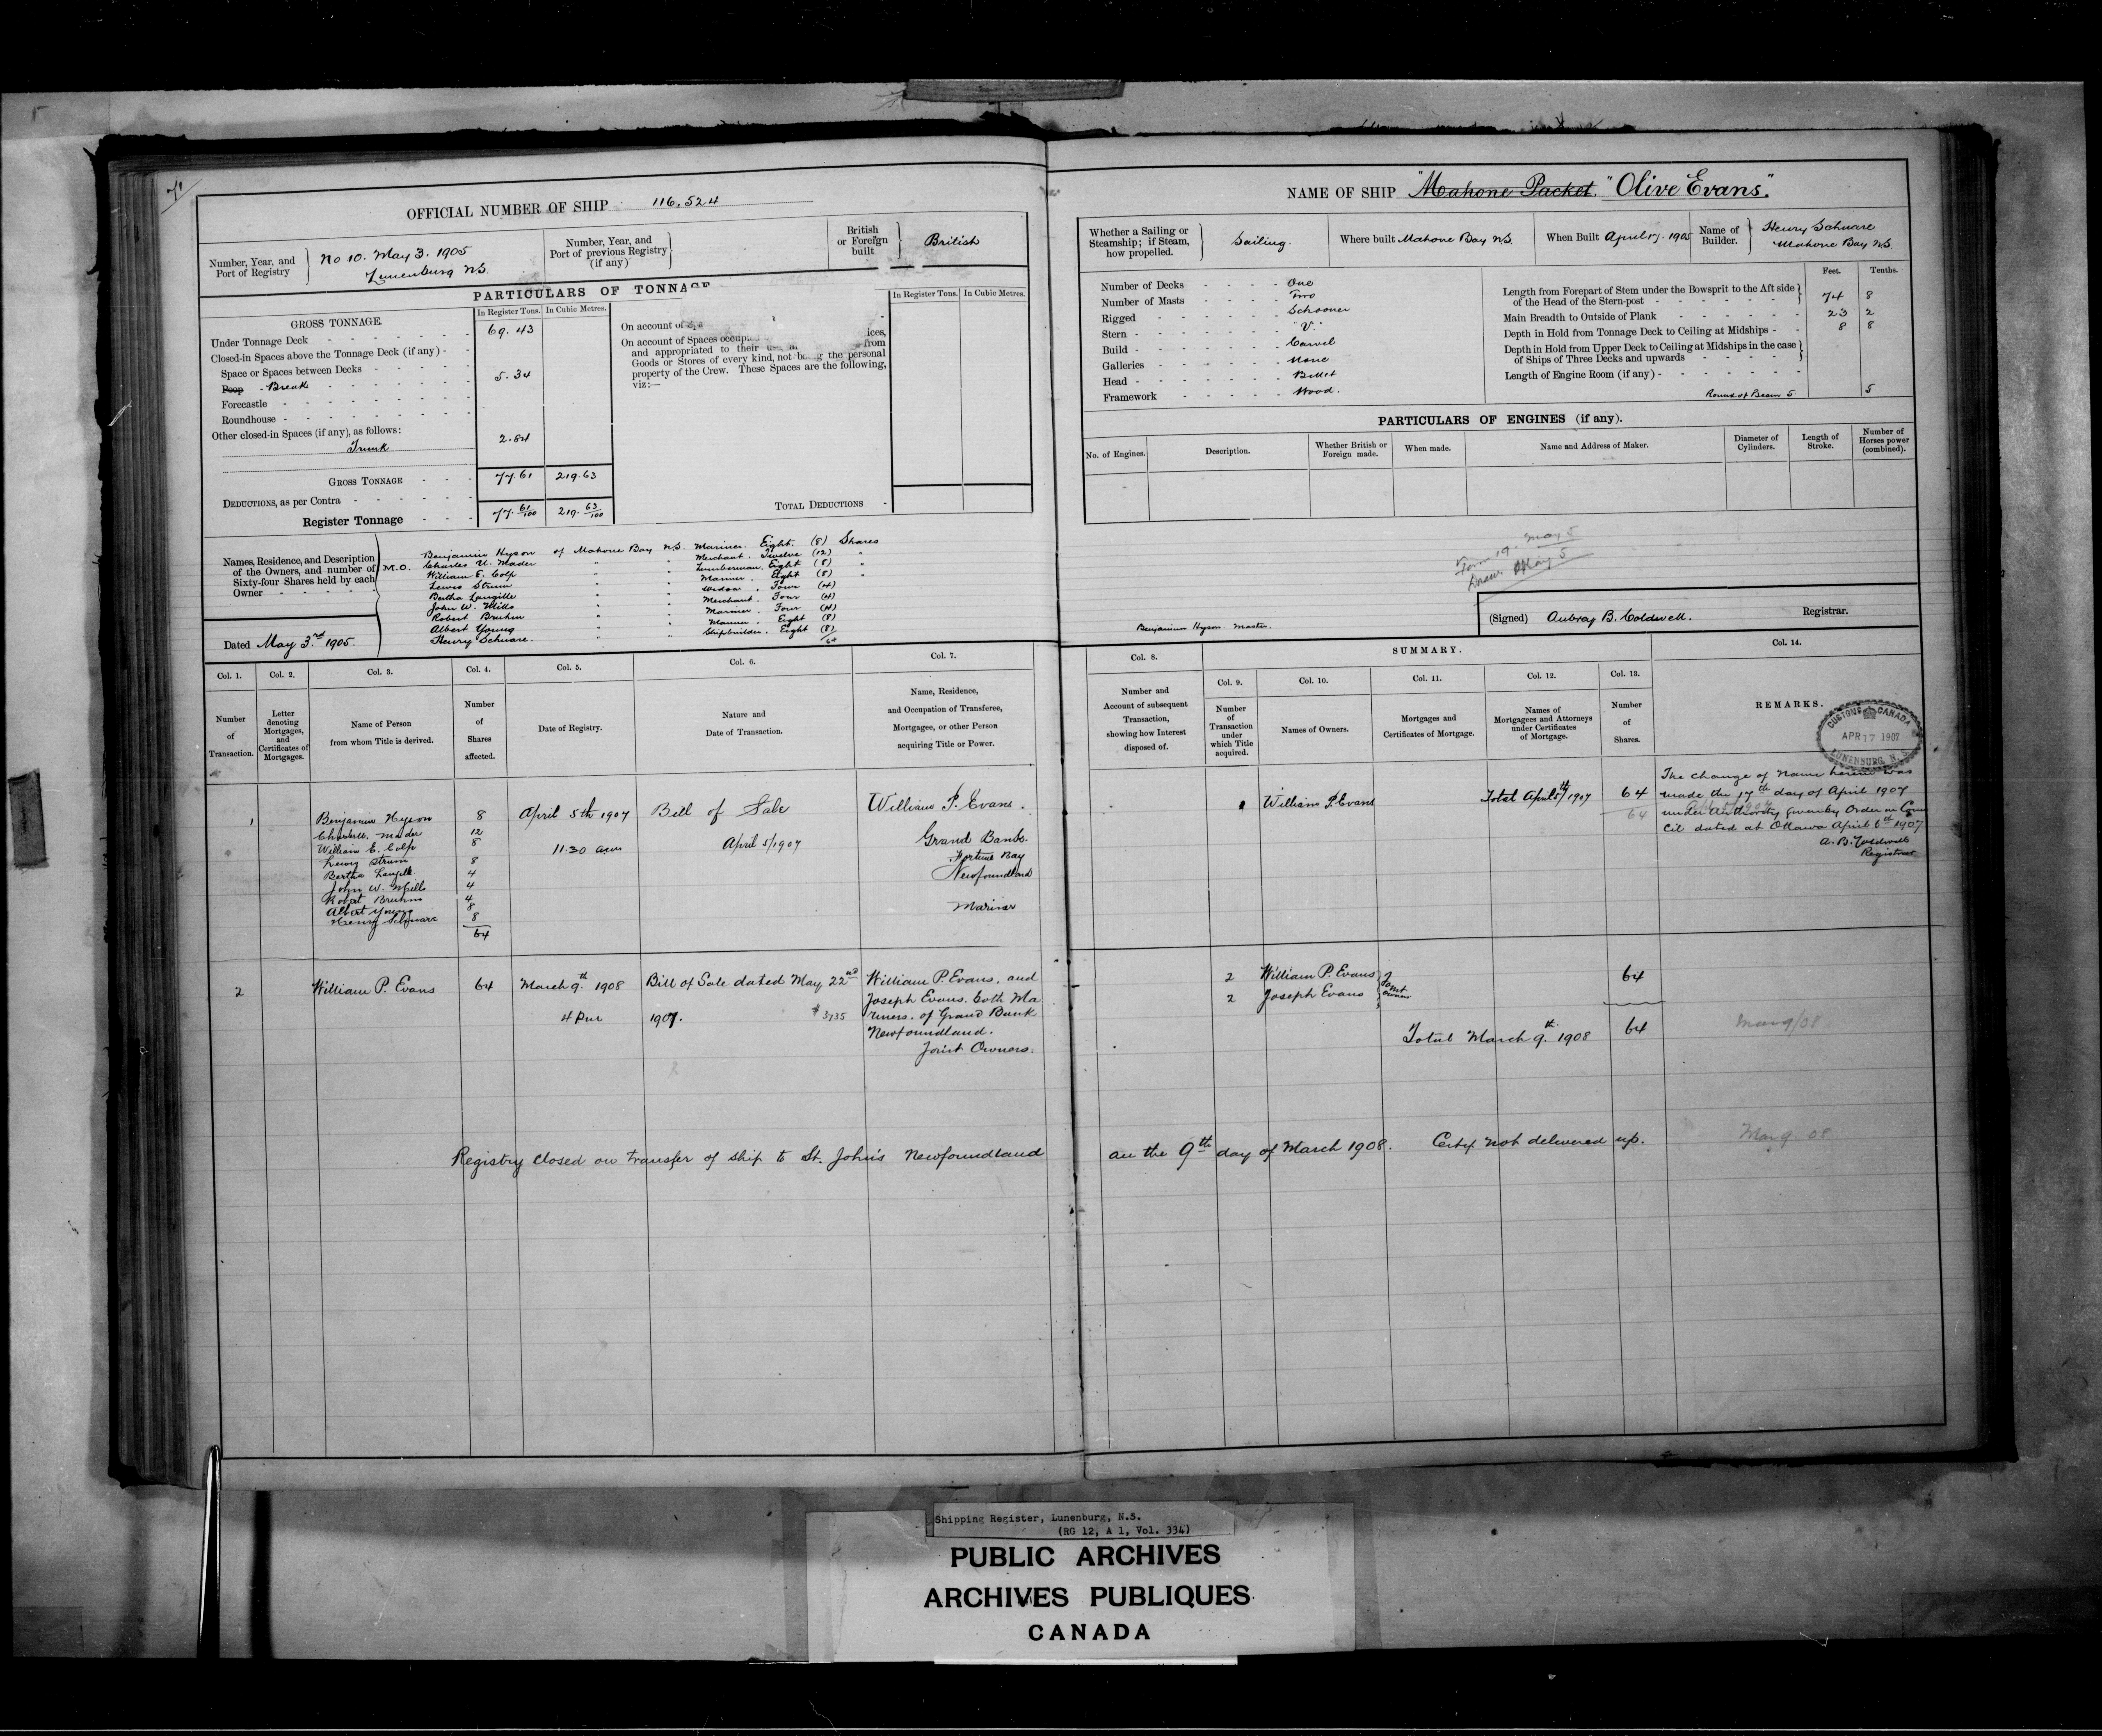 71
OFFICIAL NUMBER OF SHIP 116,524
Number, Year, and Port of Registry
No 10. May 3. 1905
Lunenburg N.S.
Number, Year, and Port of previous Registry (if any)
British or Foreign built
British
PARTICULARS OF TONNAGE
GROSS TONNAGE.
In Register Tons.
In Cubic Metres.
Under Tonnage Deck 69.43
Closed-in Spaces above the Tonnage Deck (if any) -
Space or Spaces between Decks
Poop - Break 5.34
Forecastle
Roundhouse
Other closed-in Spaces (if any), as follows:
Trunk 2.84
GROSS TONNAGE 77.61 219.63
DEDUCTIONS, as per Contra
Register Tonnage 77.61/100 219.63/100
On account of
On account of Spaces ices,
and appropriated to their from
Goods or Stores of every kind, not being the personal
property of the Crew. These Spaces are the following,
viz:—
In Register Tons.
In Cubic Metres.
TOTAL DEDUCTIONS
Names, Residence, and Description of the Owners, and number of Sixty-four Shares held by each Owner
M.O.
Benjamin Hyson of Mahone Bay N.S. Mariner. Eight. (8) Shares
Charles U. Mader " " Merchant. Twelve (12) "
William E. Colp " " Lumberman. Eight (8) "
Lewis Strum " " Mariner. Eight (8) "
Bertha Langille " " Widow. Four (4)
John W. Mills " " Merchant. Four (4)
Robert Bruhm " " Mariner. Four (4)
Albert Young " " Mariner. Eight (8)
Henry Schware. " " Shipbuilder. Eight (8)
64
Dated May 3rd 1905.
NAME OF SHIP "Mahone Packet." "Olive Evans".
Whether a Sailing or Steamship; if Steam, how propelled.
Sailing.
Where built Mahone Bay N.S.
When Built April 17. 1905
Name of Builder.
Henry Schware
Mahone Bay N.S.
Number of Decks One
Number of Masts Two
Rigged Schooner
Stern "V."
Build Carvel
Galleries None
Head Billet
Framework Wood.
Feet. Tenths.
Length from Forepart of Stem under the Bowsprit to the Aft side of the Head of the Stern-post 74 8
Main Breadth to Outside of Plank 23 2
Depth in Hold from Tonnage Deck to Ceiling at Midships 8 8
Depth in Hold from Upper Deck to Ceiling at Midships in the case of Ships of Three Decks and upwards
Length of Engine Room (if any)
Round of Beam 5 5
PARTICULARS OF ENGINES (if any).
No. of Engines.
Description.
Whether British or Foreign made.
When made.
Name and Address of Maker.
Diameter of Cylinders.
Length of Stroke.
Number of Horses power (combined).
Form 19. May 5
May 5
Benjamin Hyson. Master.
(Signed) Aubray B. Coldwell. Registrar.
Col. 1.
Col. 2.
Col. 3.
Col. 4.
Col. 5.
Col. 6.
Col. 7.
Number of Transaction.
Letter denoting Mortgages, and Certificates of Mortgages.
Name of Person from whom Title is derived.
Number of Shares affected.
Date of Registry.
Nature and Date of Transaction.
Name, Residence, and Occupation of Transferee, Mortgagee, or other Person acquiring Title or Power.
Col. 8.
SUMMARY.
Col. 9.
Col. 10.
Col. 11.
Col. 12.
Col. 13.
Col. 14.
Number and Account of subsequent Transaction, showing how Interest disposed of.
Number of Transaction under which Title acquired.
Names of Owners.
Mortgages and Certificates of Mortgage.
Names of Mortgagees and Attorneys under Certificates of Mortgage.
Number of Shares.
REMARKS.
CUSTOMS CANADA
APR 17 1907
LUNENBURG, N.S.
1
Benjamin Hyson 8
Charles U. Mader 12
William E. Colp 8
Lewis Strum 8
Bertha Langille 4
John W. Mills 4
Robert Bruhm 4
Albert Young 8
Henry Schware 8
64
April 5th 1907
11.30 am
Bill of Sale
April 5/1907
William P. Evans.
Grand Bank.
Fortune Bay
Newfoundland
Mariner
1 William P. Evans
Total April 5th/1907 64
64
The change of Name herein was
made the 17th day of April 1907
under Authority given by Order in Coun
cil dated at Ottawa April 6th 1907
A. B. Coldwell
Registrar
2
William P. Evans 64
March 9th. 1908
4 Pm
Bill of Sale dated May 22nd
1907. $3735
William P. Evans, and
Joseph Evans. both Ma
riners. of Grand Bank
Newfoundland.
Joint Owners.
2 William P. Evans
2 Joseph Evans
Joint owners
64
Total March 9th. 1908 64
Mar 9/08
Registry Closed on transfer of ship to St. John's Newfoundland on the 9th day of March 1908. Certf. not delivered up.
Mar 9. 08
Shipping Register, Lunenburg, N.S.
(RG 12, A 1, Vol. 334)
PUBLIC ARCHIVES
ARCHIVES PUBLIQUES
CANADA